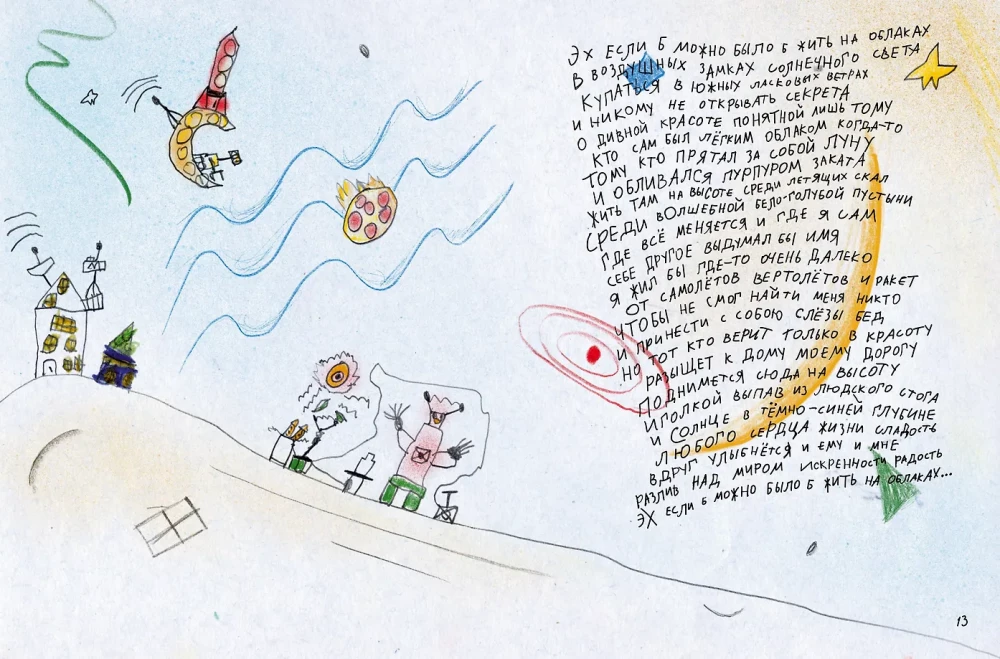 ЭХ ЕСЛИ Б МОЖНО БЫЛО Б ЖИТЬ НА ОБЛАКАХ
В ВОЗДУШНЫХ ЗАМКАХ СОЛНЕЧНОГО СВЕТА
КУПАТЬСЯ В ЮЖНЫХ ЛАСКОВЫХ ВЕТРАХ
И НИКОМУ НЕ ОТКРЫВАТЬ СЕКРЕТА
О ДИВНОЙ КРАСОТЕ ПОНЯТНОЙ ЛИШЬ ТОМУ
КТО САМ БЫЛ ЛЁГКИМ ОБЛАКОМ КОГДА-ТО
ТОМУ КТО ПРЯТАЛ ЗА СОБОЙ ЛУНУ
И ОБЛИВАЛСЯ ПУРПУРОМ ЗАКАТА
ЖИТЬ ТАМ НА ВЫСОТЕ СРЕДИ ЛЕТЯЩИХ СКАЛ
СРЕДИ ВОЛШЕБНОЙ БЕЛО-ГОЛУБОЙ ПУСТЫНИ
ГДЕ ВСЁ МЕНЯЕТСЯ И ГДЕ Я САМ
СЕБЕ ДРУГОЕ ВЫДУМАЛ БЫ ИМЯ
Я ЖИЛ БЫ ГДЕ-ТО ОЧЕНЬ ДАЛЕКО
ОТ САМОЛЁТОВ ВЕРТОЛЁТОВ И РАКЕТ
ЧТОБЫ НЕ СМОГ НАЙТИ МЕНЯ НИКТО
И ПРИНЕСТИ С СОБОЮ СЛЁЗЫ БЕД
НО ТОТ КТО ВЕРИТ ТОЛЬКО В КРАСОТУ
РАЗЫЩЕТ К ДОМУ МОЕМУ ДОРОГУ
ПОДНИМЕТСЯ СЮДА НА ВЫСОТУ
ИГОЛКОЙ ВЫПАВ ИЗ ЛЮДСКОГО СТОГА
И СОЛНЦЕ В ТЁМНО-СИНЕЙ ГЛУБИНЕ
ЛЮБОГО СЕРДЦА ЖИЗНИ СЛАДОСТЬ
ВДРУГ УЛЫБНЁТСЯ И ЕМУ И МНЕ
РАЗЛИВ НАД МИРОМ ИСКРЕННОСТИ РАДОСТЬ
ЭХ ЕСЛИ Б МОЖНО БЫЛО Б ЖИТЬ НА ОБЛАКАХ...
13